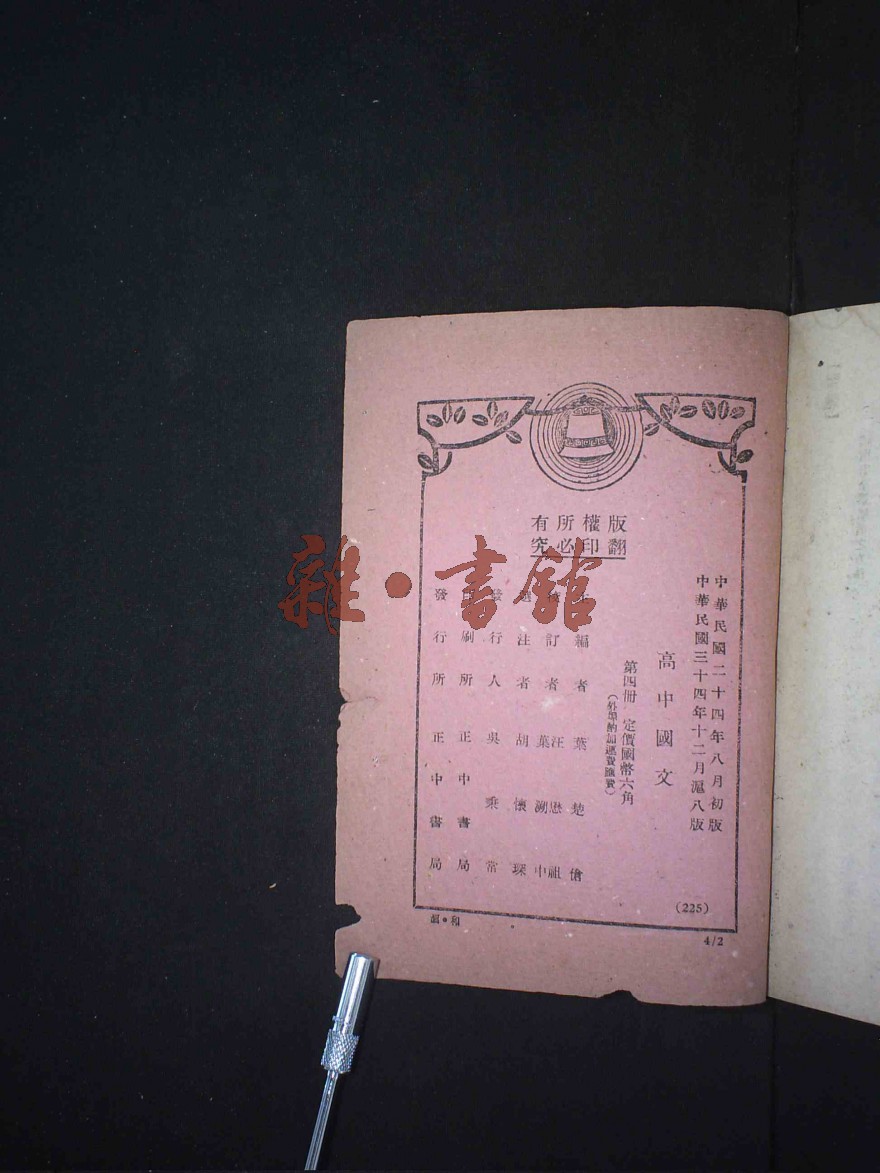 版權所有
翻印必究
中華民國二十四年八月初版
中華民國三十四年十二月滬八版
高中國文
第四冊 定價國幣六角
(外埠酌加運費匯費)
編者 葉楚傖
訂者 汪懋祖 葉溯中
選注者 胡懷琛
發行人 吳秉常
印刷所 正中書局
發行所 正中書局
(225)
4/2
雜·書館